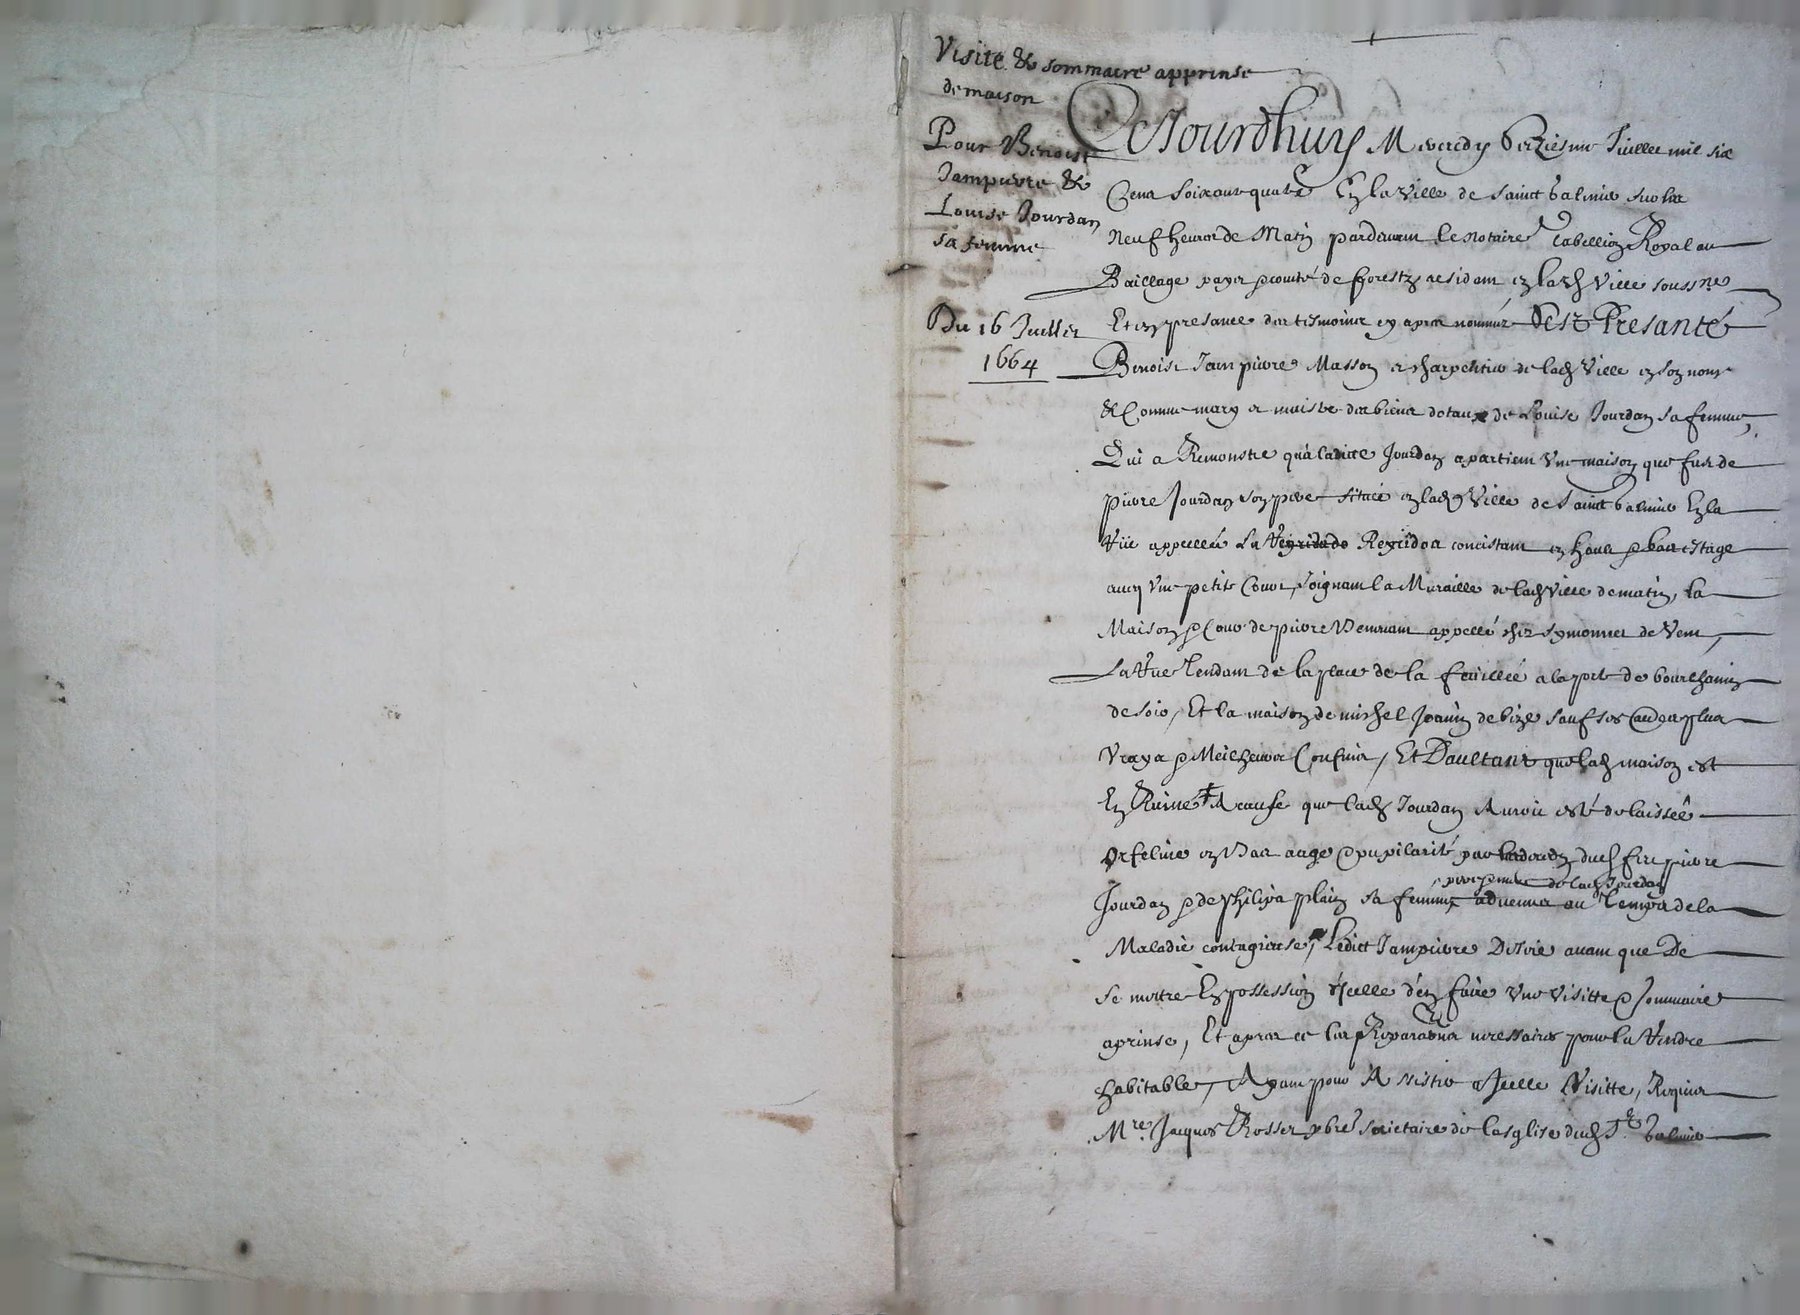 Visite & sommaire apprinse
de maison
Pour Benoist
Jampierre &
Louise Jourdan
sa femme
Du 16 Juillet
1664
Ce Jourdhuy Mercredy seziesme Juillet mil six
Cens soixante quatre En la ville de Sainct Galmier sur les
Neuf heures de Matin pardevant le Notaire Tabellion Royal au
Bailliage pays & comté de forestz residant en lad Ville soussne
Et en presance des tesmoins cy apres nommés Sest Presanté
Benoist Jampierre Masson et charpentier de lad Ville en son nom
& Comme mary et maistre des biens dotaux de Louise Jourdan sa femme,
Qui a Remonstre qua ladicte Jourdan apartient Une maison que fust de
pierre Jourdan son pere sitüée en lad Ville de Sainct Galmier En la
Rüe appellée La concistant en haut & bas estage
avec Une petite Cour, Joignant la Muraille de lad Ville de matin, la
Maison & Cour de pierre appellé chez symonnet de Vent,
La Rue Tendant de la place de la feuillée a la porte de
de soir, Et la maison de michel Joanin de bize sauf ses
Vrays & Meilheurs Confins, Et Daultant que lad maison est
En Ruine A cause que lad Jourdan Auroit esté delaissée
Orfeline en Bas aage & pupilarité par dud feu pierre
pere & mere de lad Jourdan
Jourdan & de philipa plain sa femme, advenus au Temps de la
Maladie contagieuse, Ledict Jampierre Desire avant que De
Se mettre En possession dicelle den faire Une Visitte & Sommaire
aprinse, Et apres ce les Reparaons necessaires pour la Rendre
habitable, Ayant pour Assister a Jcelle Visitte, Requis
Mre Jacques Rosser pbre Societaire de lesglise dud St Galmier